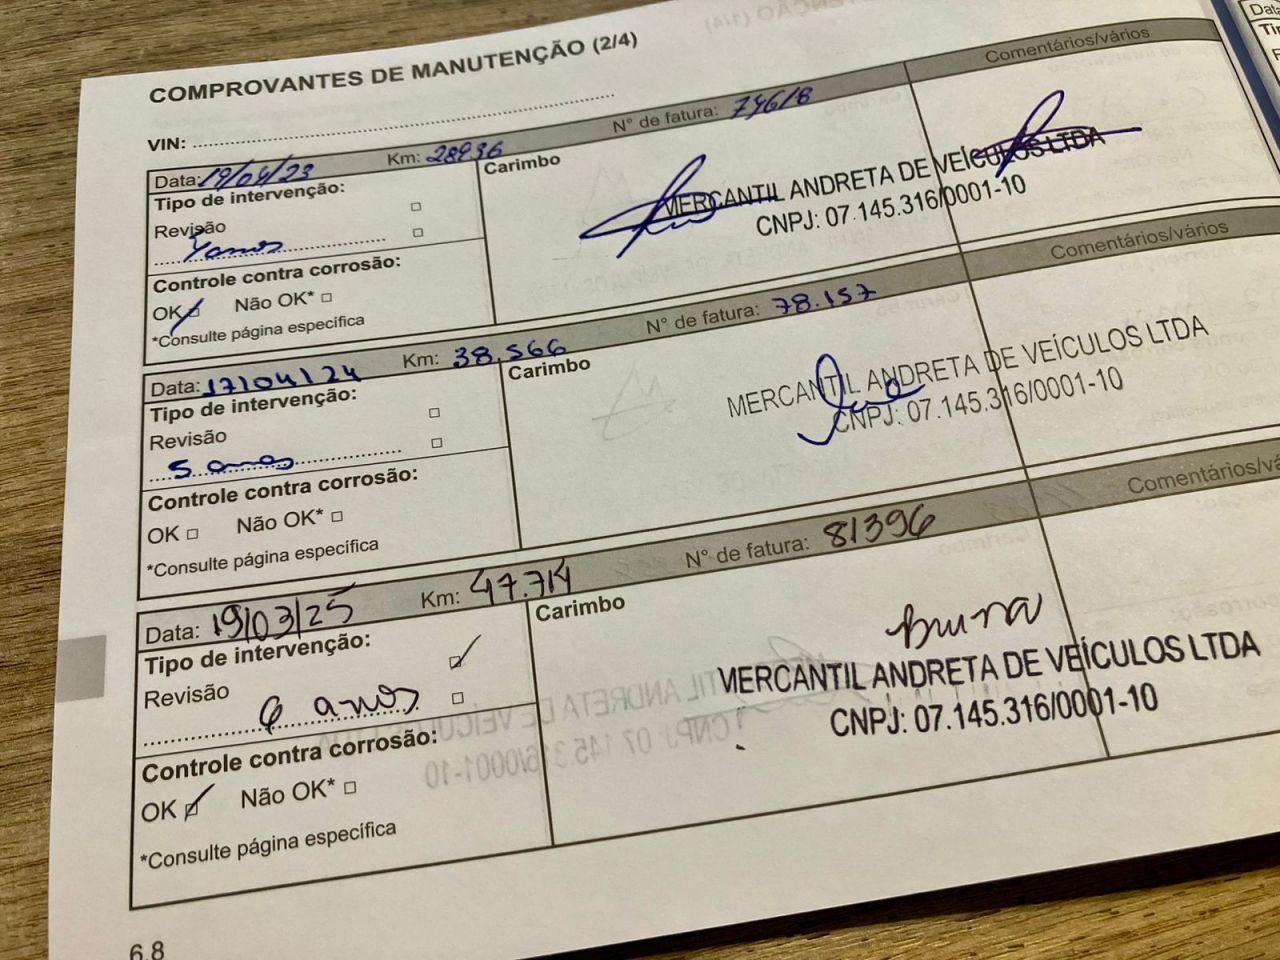 COMPROVANTES DE MANUTENÇÃO (2/4)
VIN:
Data: 19/04/23 Km: 28936 N° de fatura: 74618 Comentários/vários
Tipo de intervenção:
Revisão
4 anos
Controle contra corrosão:
OK Não OK*
*Consulte página específica
Carimbo
MERCANTIL ANDRETA DE VEÍCULOS LTDA
CNPJ: 07.145.316/0001-10
Data: 17/04/24 Km: 38.566 N° de fatura: 78.157 Comentários/vários
Tipo de intervenção:
Revisão
5 anos
Controle contra corrosão:
OK Não OK*
*Consulte página específica
Carimbo
MERCANTIL ANDRETA DE VEÍCULOS LTDA
CNPJ: 07.145.316/0001-10
Data: 19/03/25 Km: 47.714 N° de fatura: 81396 Comentários/vá
Tipo de intervenção:
Revisão
6 anos
Controle contra corrosão:
OK Não OK*
*Consulte página específica
Carimbo
Bruna
MERCANTIL ANDRETA DE VEÍCULOS LTDA
CNPJ: 07.145.316/0001-10
6.8